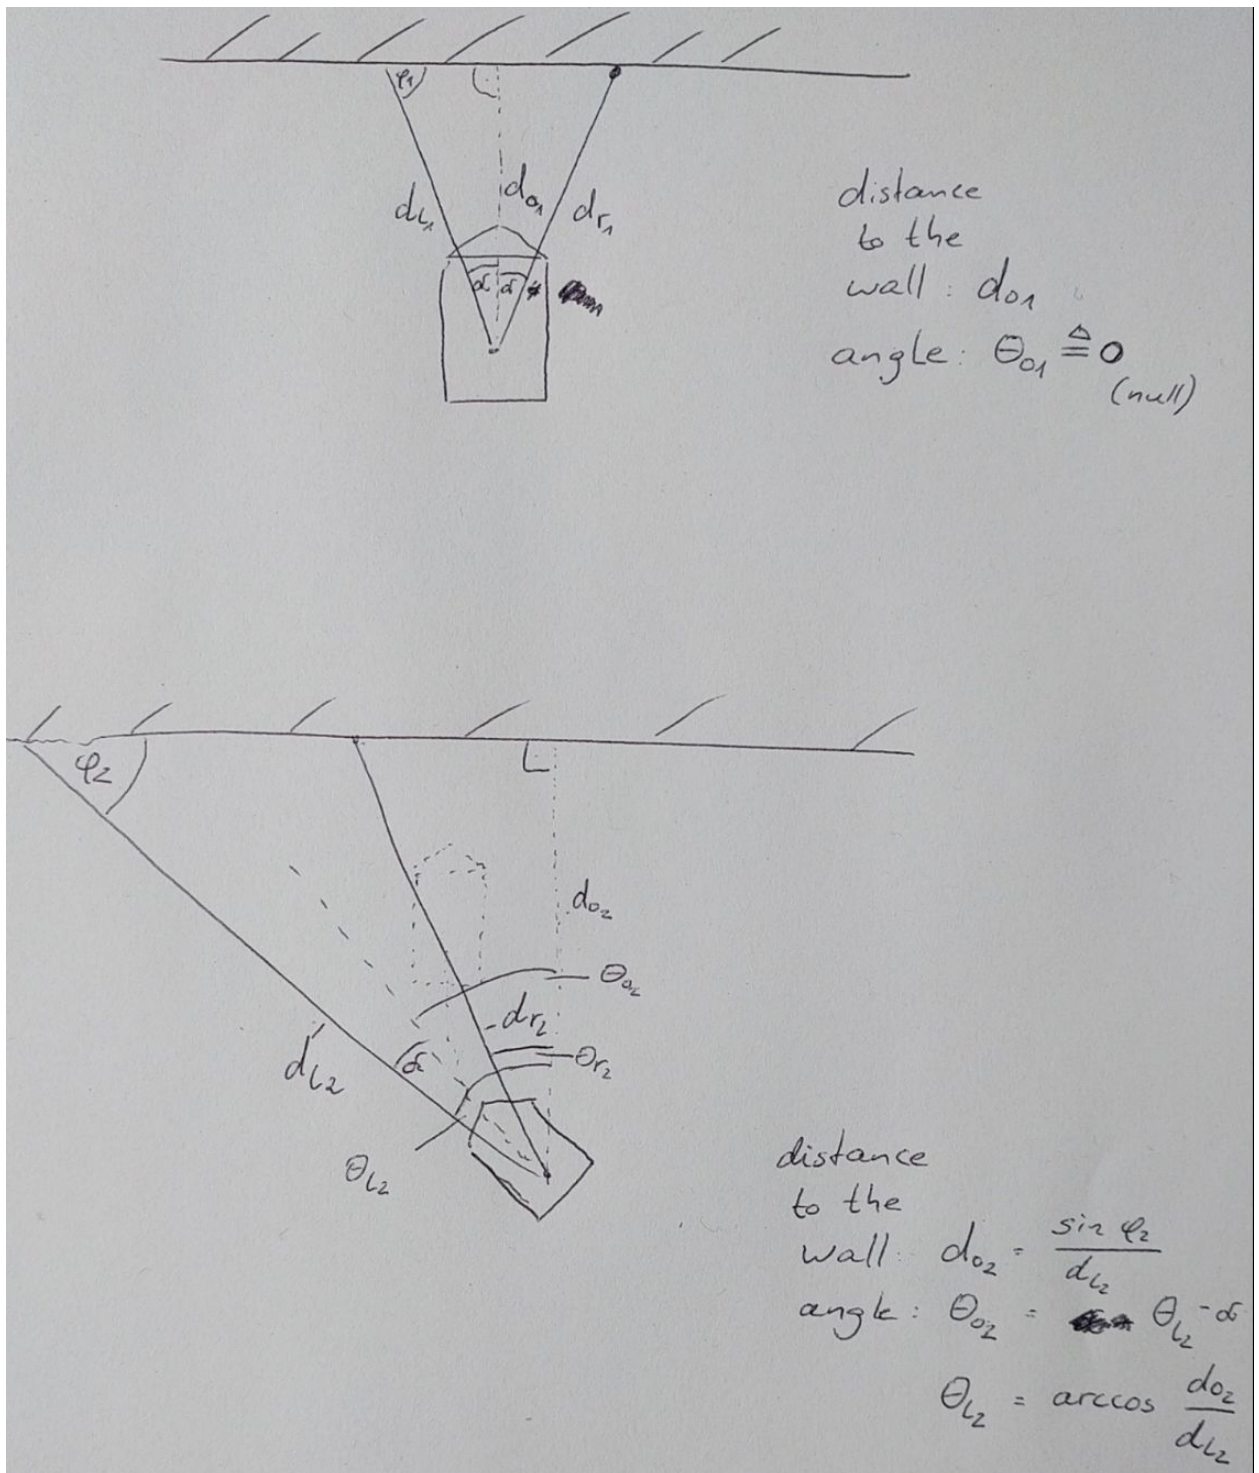 φ1
d_L1
d_o1
d_r1
α α
distance
to the
wall: d_o1
angle: Θ_o1 ≙ 0
(null)
φ2
d_o2
Θ_o2
d_r2
Θ_r2
α
d_L2
Θ_L2
distance
to the
wall: d_o2 = sin φ2 / d_L2
angle: Θ_o2 = Θ_L2 - α
Θ_L2 = arccos d_o2 / d_L2